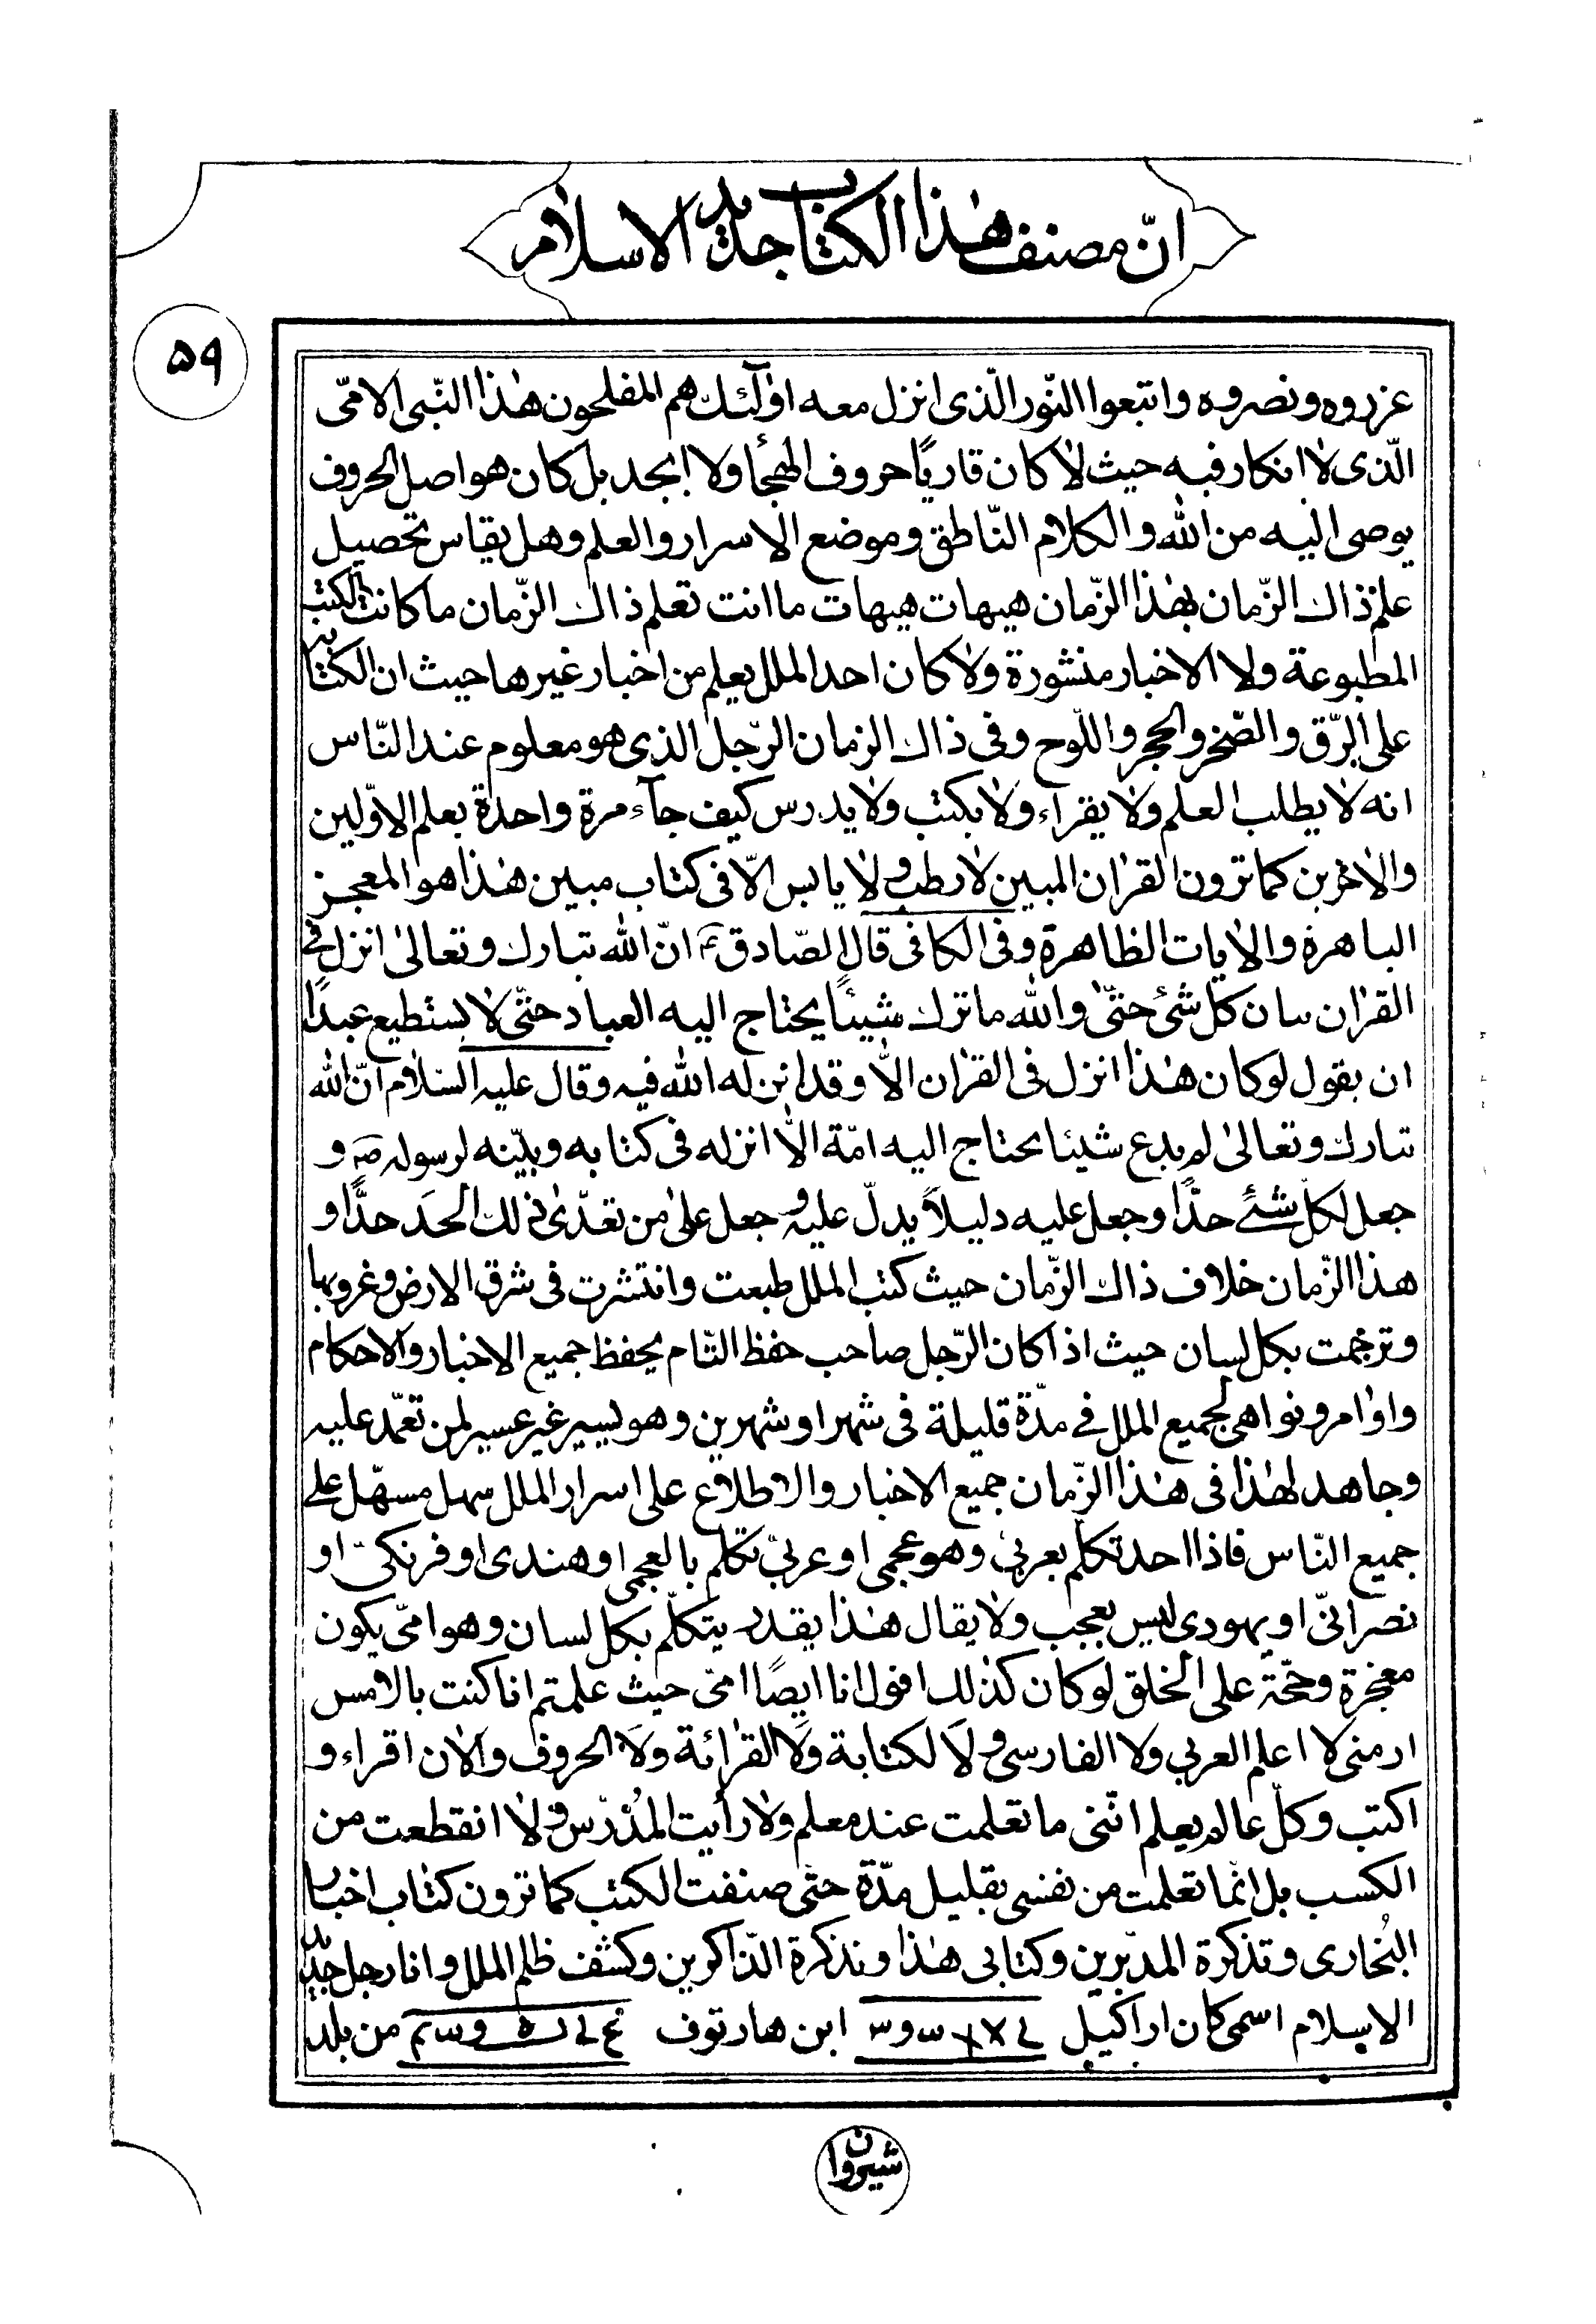 انّ مصنف هذا الكتاب جديد الاسلام
۵۹
عزروه ونصروه واتبعوا النّور الّذى انزل معه اولٓئك هم المفلحون هٰذا النّبى الامّى
الّذى لا انكار فيه حيث لا كان قاريًا حروف الهجأ ولا ابجد بل كان هو اصل الحروف
يوصى اليه من الله والكلام النّاطق وموضع الاسرار والعلم وهل يقاس تحصيل
علم ذاك الزّمان بهٰذا الزّمان هيهات هيهات ما انت تعلم ذاك الزّمان ما كانت الكتب
المطبوعة ولا الاخبار منشورة ولا كان احد الملل يعلم من اخبار غيرها حيث ان الكتاب
على الرّق والصّخر والحجر واللّوح وفى ذاك الزمان الرّجل الذى هو معلوم عند النّاس
انه لا يطلب العلم ولا يقراء ولا يكتب ولا يدرس كيف جآء مرة واحدة بعلم الاوّلين
والاخرين كما ترون القرٰان المبين لا رطب ولا يابس الّا فى كتاب مبين هٰذا هو المعجز
الباهرة والاٰيات الظاهرة وفى الكافى قال الصّادق ع انّ الله تبارك وتعالىٰ انزل فى
القرٰان بيان كل شئ حتّىٰ والله ما ترك شيئًا يحتاج اليه العباد حتّى لا يستطيع عبدًا
ان يقول لو كان هٰذا انزل فى القرٰان الّا وقد انزله الله فيه وقال عليه السّلام انّ الله
تبارك وتعالىٰ لم يدع شيئا يحتاج اليه امّة الّا انزله فى كتابه وبيّنه لرسوله ص و
جعل لكلّ شئ حدًّا وجعل عليه دليلًا يدلّ عليه وجعل على من تعدّى ذلك الحدَ حدًّا و
هذا الزّمان خلاف ذاك الزّمان حيث كتب الملل طبعت وانتشرت فى شرق الارض وغروبها
وترجمت بكل لسان حيث اذا كان الرّجل صاحب حفظ التّام يحفظ جميع الاخبار والاحكام
واوٰامر ونواهى لجميع الملل فى مدّة قليلة فى شهر او شهرين وهو يسير غير عسير لمن تعمّد عليه
وجاهد لهٰذا فى هٰذا الزّمان جميع الاخبار والاطلاع على اسرار الملل سهل مسهّل على
جميع النّاس فاذا احد تكلّم بعربىّ وهو عجمى او عربىّ تكلّم بالعجمى او هندى او فرنكىّ او
نصرانىّ او يهودى ليس بعجب ولا يقال هٰذا يقدر يتكلّم بكل لسان وهو امّى يكون
معجزة وحجّة على الخلق لو كان كذلك اقول انا ايضًا امّى حيث علمتم انا كنت بالامس
ارمنى لا اعلم العربى ولا الفارسى ولَا لكتابة ولَا القرٰائة ولَا الحروف والاٰن اقراء و
اكتب وكلّ عالم يعلم انّنى ما تعلمت عند معلم ولا رأيت المُدَرّس ولا انقطعت من
الكسب بل انّما تعلمت من نفسى بقليل مدّة حتّى صنفت الكتب كما ترون كتاب اخبار
البُخارى وتذكرة المدبّرين وكتابى هٰذا وتذكرة الذّاكرين وكشف ظلم الملل وانا رجل جديد
الاسلام اسمى كان اراكيل ابن هارتوف من بلد
شيروان